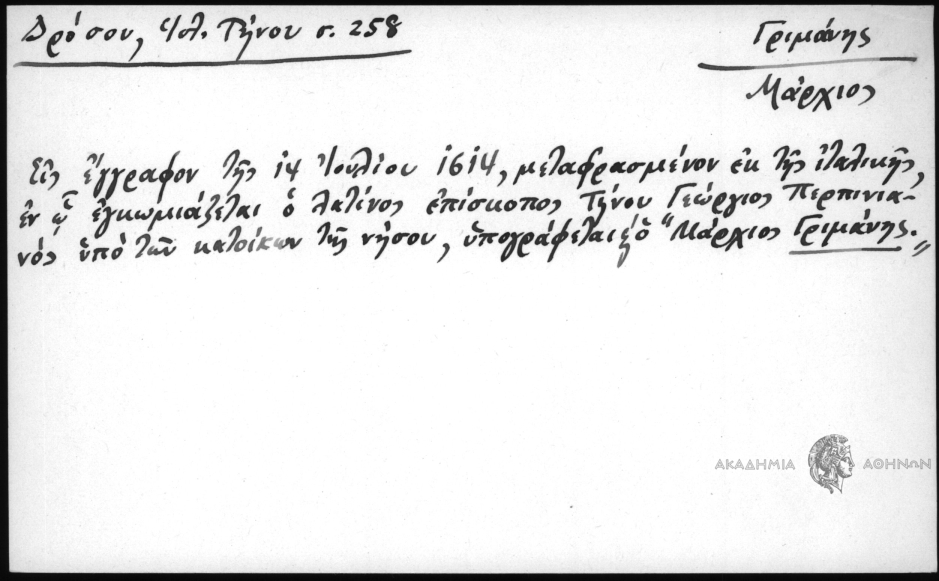 Δρόσου, Ἱστ. Τήνου σ. 258
Γριμάνης
Μάρχιος
Εἰς ἔγγραφον τῆς 14 Ἰουλίου 1614, μεταφρασμένον ἐκ τῆς ἰταλικῆς,
ἐν ᾧ ἐγκωμιάζεται ὁ λατῖνος ἐπίσκοπος Τήνου Γεώργιος Περπινια-
νός ὑπό τῶν κατοίκων τῆς νήσου, ὑπογράφεται ὁ "Μάρχιος Γριμάνης.„
ΑΚΑΔΗΜΙΑ ΑΘΗΝΩΝ